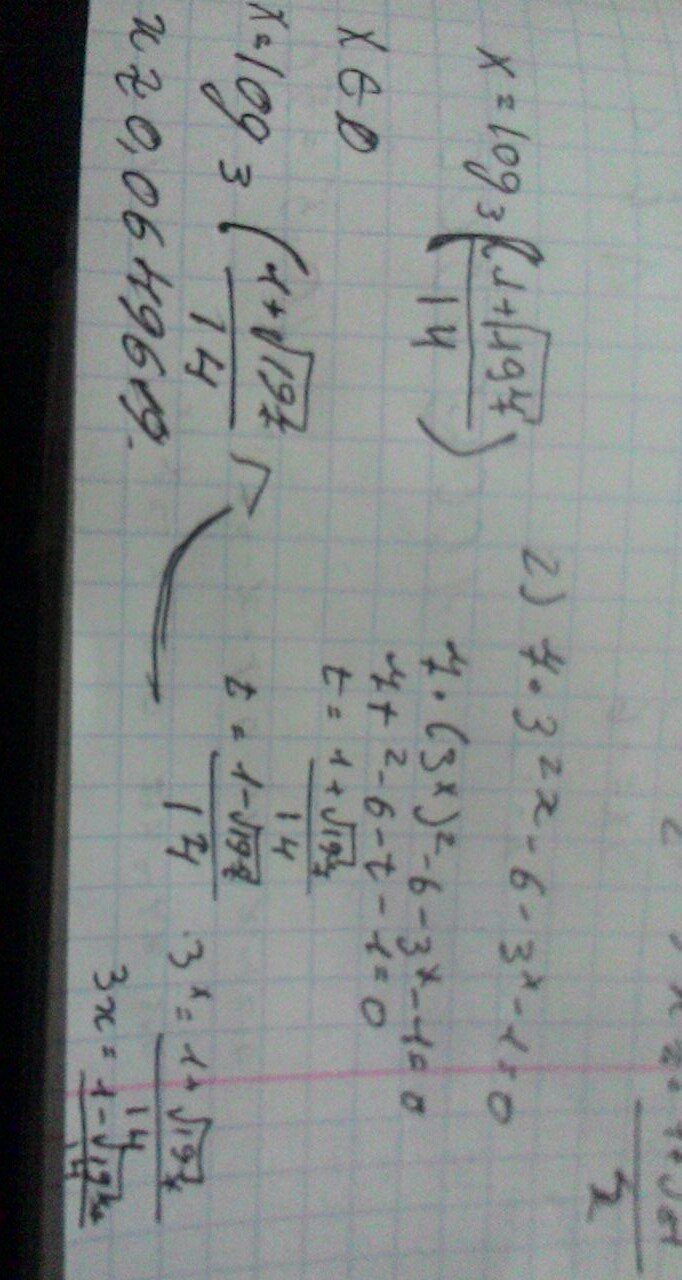 2) 7·3²ˣ-6-3ˣ-1=0
7·(3ˣ)²-6-3ˣ-1=0
7t²-6-t-1=0
t = 1+√197 / 14
t = 1-√197 / 14
3ˣ = 1+√197 / 14
3x = 1-√197 / 14
x = log₃(1+√197 / 14)
x∈∅
x = log₃(1+√197 / 14)
x≈0,0649619.